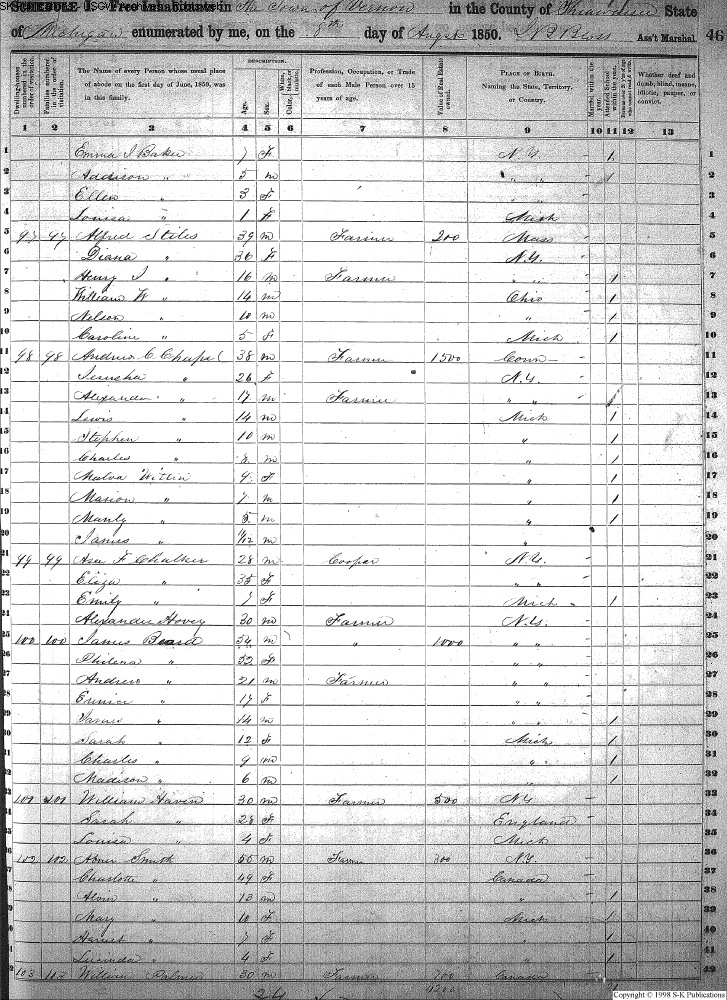 SCHEDULE I. Free Inhabitants in The Town of Vernon in the County of Shiawassee State
of Michigan enumerated by me, on the 8th day of August 1850. Ass't Marshal. 46
Dwelling-houses numbered in the order of visitation. Families numbered in the order of visitation. The Name of every Person whose usual place of abode on the first day of June, 1850, was in this family. DESCRIPTION. Age. Sex. Color, Profession, Occupation, or Trade of each Male Person over 15 years of age. Value of Real Estate owned. PLACE OF BIRTH. Naming the State, Territory, or Country. Married within the year. Attended School within the year. Whether deaf and dumb, blind, insane, idiotic, pauper, or convict.
1 2 3 4 5 6 7 8 9 10 11 12 13
1 Emma J Baker 7 F N.Y. 1 1
2 Addison " 5 m " " 1 2
3 Ellen " 3 F " " 3
4 Louisa " 1 F Mich 4
5 97 97 Alfred Stiles 39 m Farmer 200 Mass 5
6 Diana " 36 F N.Y. 6
7 Henry J " 16 m Farmer " " 1 7
8 William W " 14 m Ohio 1 8
9 Nelson " 10 m " 1 9
10 Caroline " 5 F Mich 1 10
11 98 98 Andrew C Chapel 38 m Farmer 1500 Conn 11
12 Jerusha " 26 F N.Y. 12
13 Alexander " 17 m Farmer " " 1 13
14 Lewis " 14 m Mich 1 14
15 Stephen " 10 m " 1 15
16 Charles " 8 m " 1 16
17 Malva 9 F " 1 17
18 Marion " 7 m " 1 18
19 Manly " 5 m " 1 19
20 James " 11/12 m " 20
21 99 99 Asa F Chalker 28 m Cooper N.Y. 21
22 Eliza " 35 F " " 22
23 Emily " 7 F Mich 1 23
24 Alexander Hovey 30 m Farmer N.Y. 24
25 100 100 James Beard 54 m " 1000 " " 25
26 Philena " 52 F " " 26
27 Andrew " 21 m Farmer " " 27
28 Eunice " 17 F " " 28
29 James " 14 m " " 1 29
30 Sarah " 12 F Mich 1 30
31 Charles " 9 m " 1 31
32 Madison " 6 m " 1 32
33 101 101 William Haven 30 m Farmer 500 N.Y. 33
34 Sarah " 28 F England 34
35 Louisa " 4 F Mich 35
36 102 102 Abner Smith 55 m Farmer 800 N.Y. 36
37 Charlotte " 49 F Canada 37
38 Alvin " 13 m " 1 38
39 Mary " 10 F Mich 1 39
40 Harriet " 7 F " 1 40
41 Lucinda " 4 F " 1 41
42 103 103 William Palmer 30 m Farmer 700 Canada 42
Copyright © 1998 S-K Publications